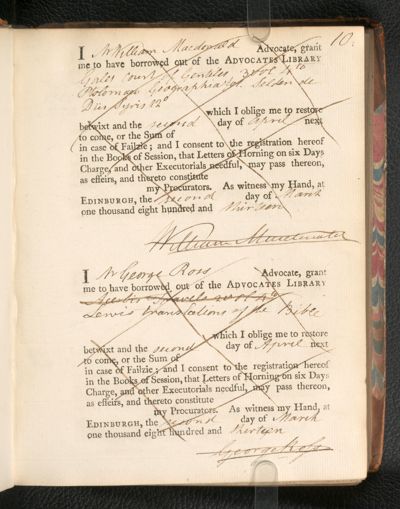 10.
I Mr William Macdonald Advocate, grant
me to have borrowed out of the ADVOCATES LIBRARY
Gales Court of Gentiles, 3 vol 4to
Ptolomæi Geographia Selden de
Diis Syris
which I oblige me to restore
betwixt and the second day of April next
to come, or the Sum of
in case of Failzie; and I consent to the registration hereof
in the Books of Session, that Letters of Horning on six Days
Charge, and other Executorials needful, may pass thereon,
as effeirs, and thereto constitute
my Procurators. As witness my Hand, at
EDINBURGH, the second day of March
one thousand eight hundred and thirteen
William Macdonald
I Mr George Ross Advocate, grant
me to have borrowed out of the ADVOCATES LIBRARY
Travels 2 vol 4to
Lewis translations of the Bible
which I oblige me to restore
betwixt and the second day of April next
to come, or the Sum of
in case of Failzie; and I consent to the registration hereof
in the Books of Session, that Letters of Horning on six Days
Charge, and other Executorials needful, may pass thereon,
as effeirs, and thereto constitute
my Procurators. As witness my Hand, at
EDINBURGH, the second day of March
one thousand eight hundred and thirteen
George Ross